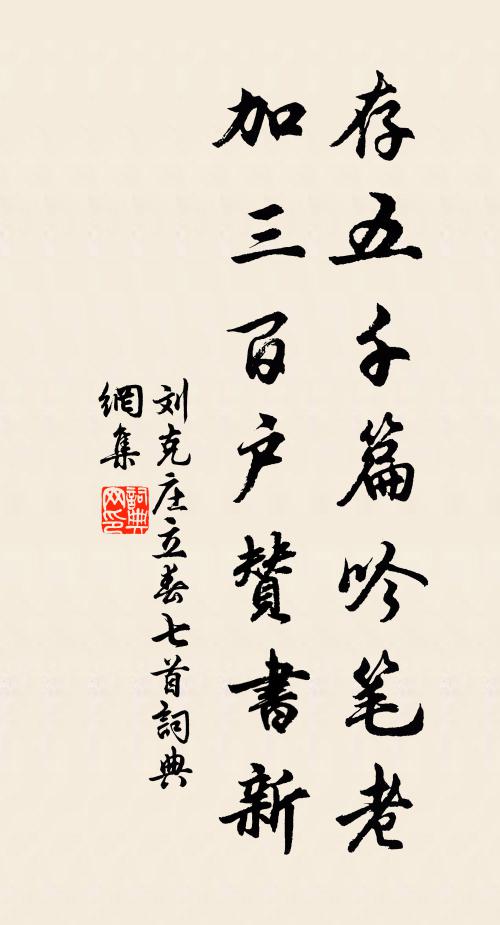 存五千篇吟笔老
加三百户赞書新
刘克庄立春七首詞典
網集
詞典网印